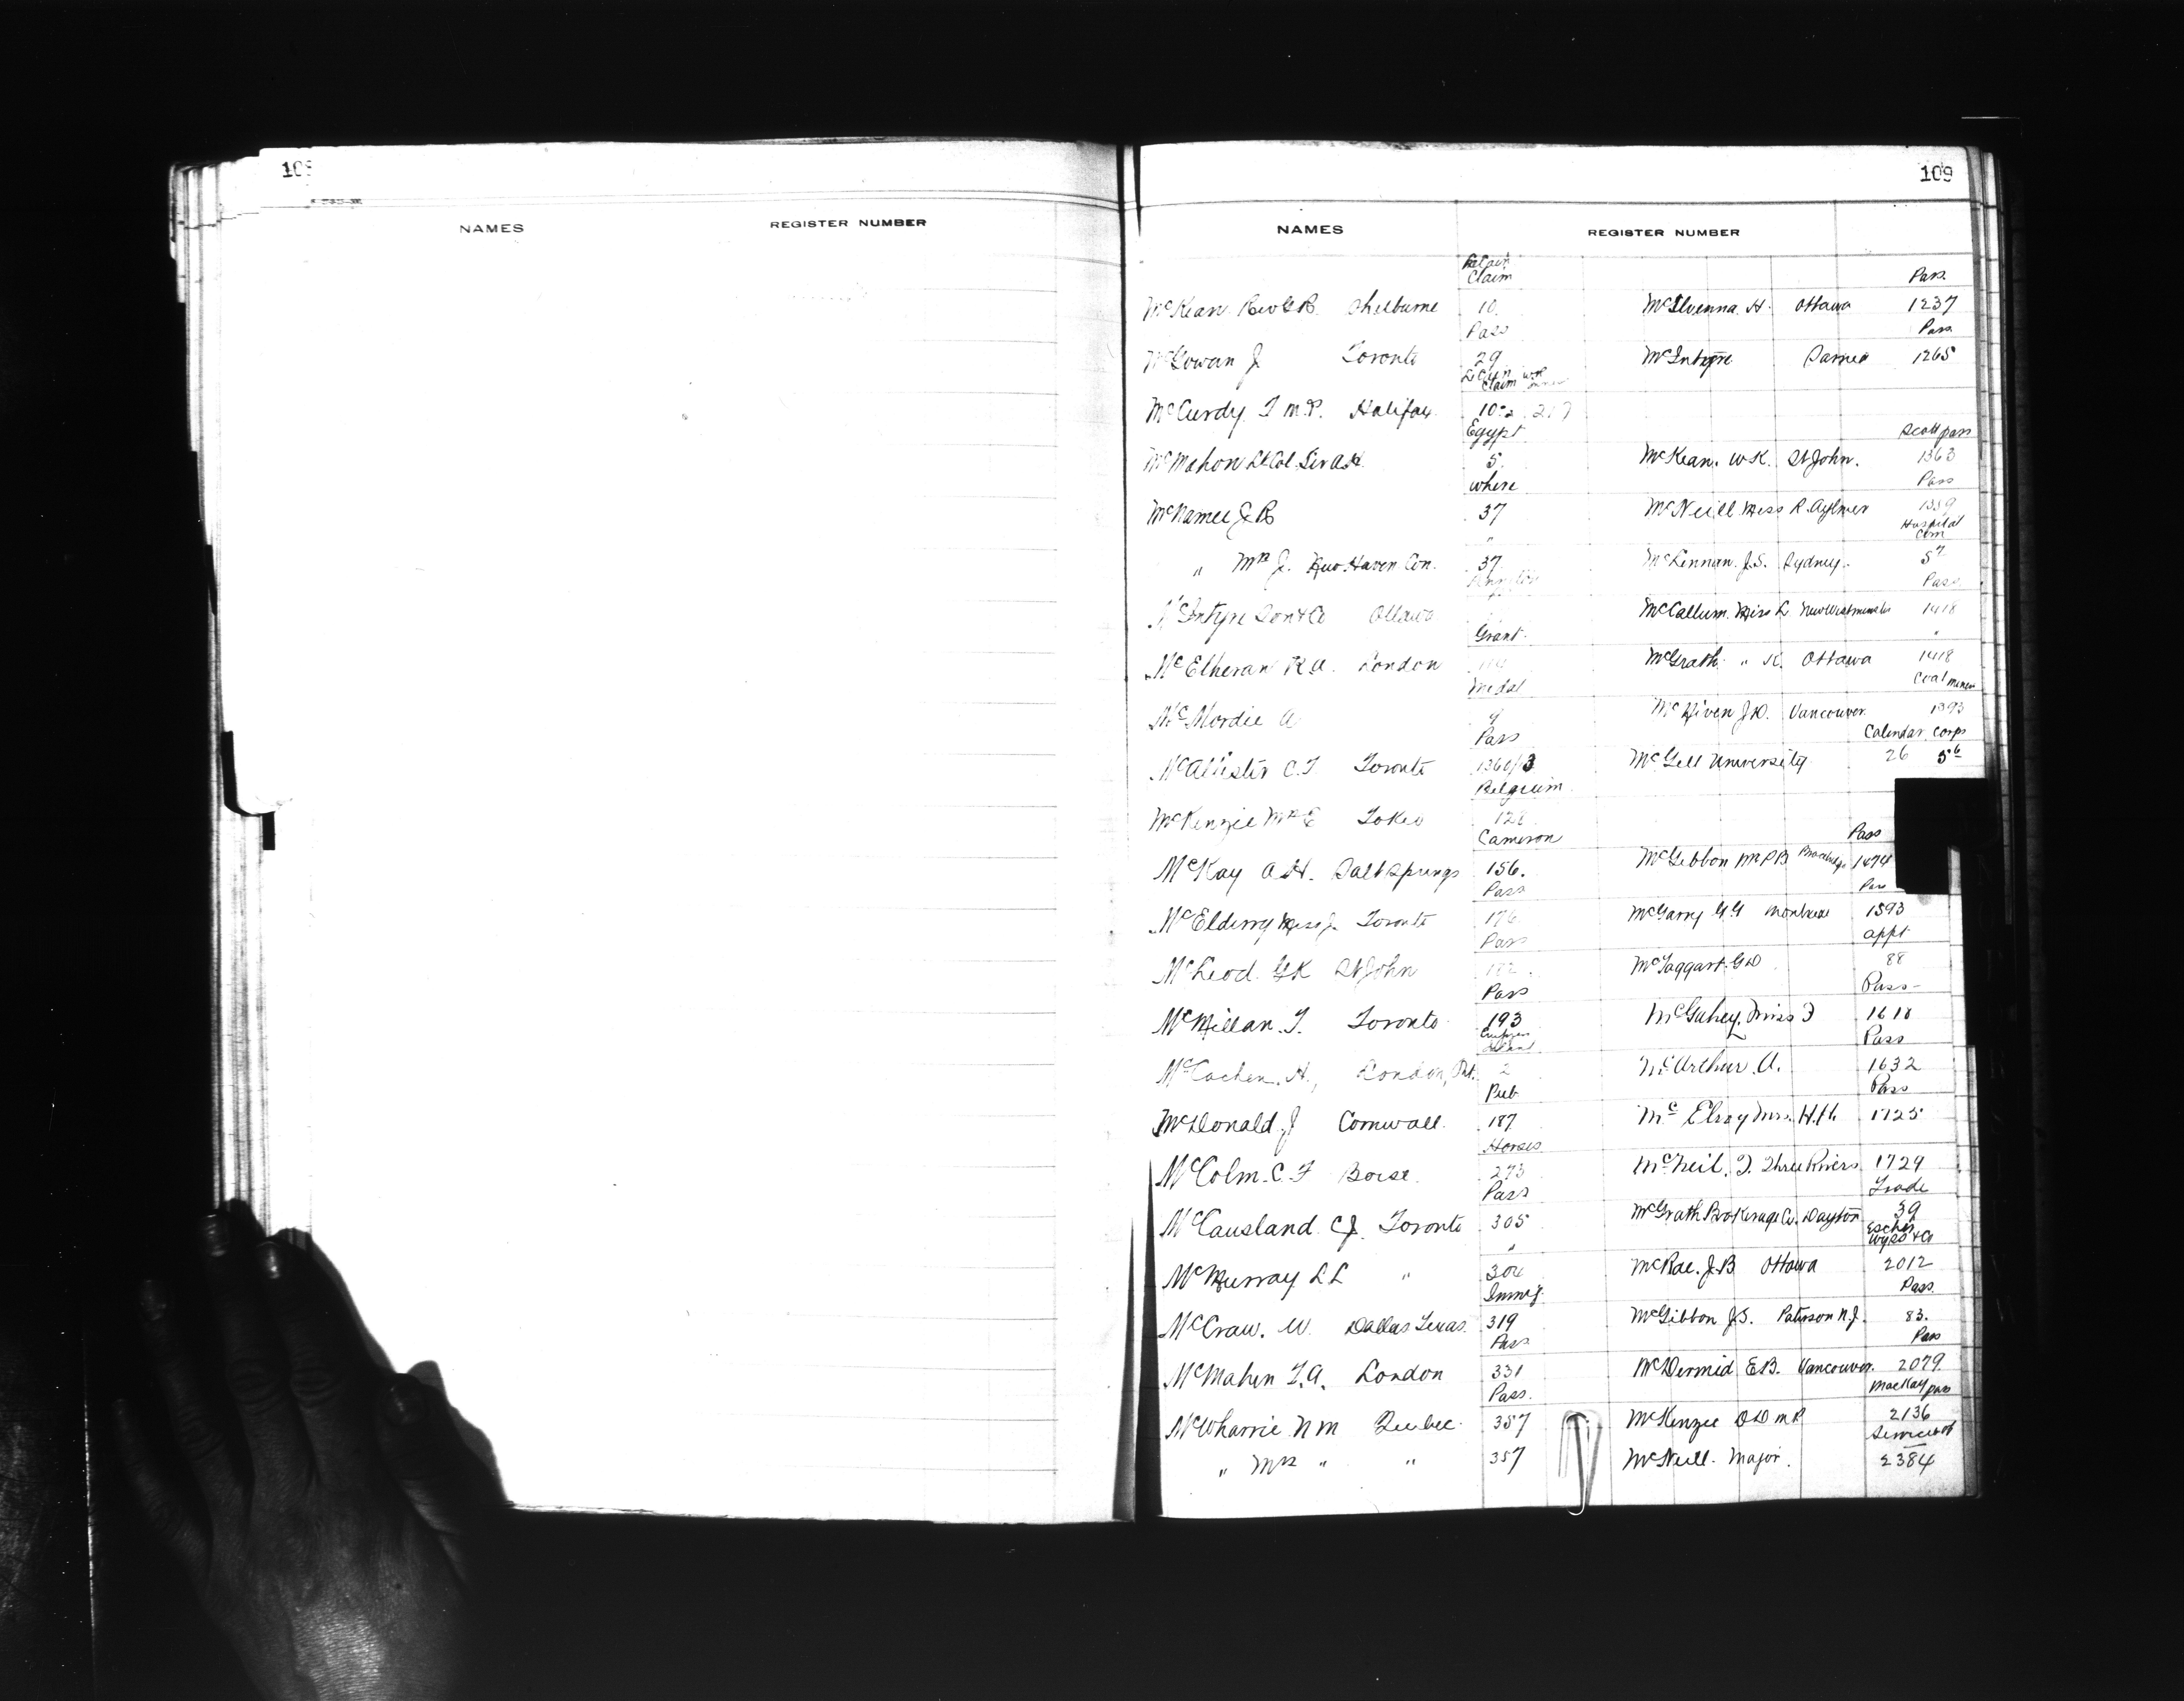 NAMES REGISTER NUMBER
109
NAMES REGISTER NUMBER
Claim
McKean Rev G.R. Shelburne 10.
Pass
McGowan J Toronto 29
Claim
McCurdy F M.P. Halifax
Egypt
McMahon Lt Col. Sir A.H. 5.
where
McNamee J R 37
"
" Mrs J. New Haven Con. 37.
McIntyre Son & Co Ottawa
Grant.
McElheran R A. London
Medal
McMordie A 4
Pass
McAllister C.F. Toronto 1360/3
Belgium
McKenzie Mrs E Tokio 128
Cameron
McKay A.H. Salt Springs 156.
Pass
McElderry Miss J. Toronto 176
Pass
McLeod G K St John 182.
Pass
McMillan. T. Toronto 193
McCochen. H., London, Ont. 2
Pub
McDonald J Cornwall. 187
Horses.
McColm. C. F Boise. 273
Pass
McCausland CJ. Toronto 305
"
McMurray L L " 304
Immig.
McCraw. W. Dallas Texas. 319
Pass
McMahen T.A. London 331
Pass.
McWharrie N M Quebec. 357
" Mrs " " 357
Pass.
McIlvenna H. Ottawa 1237
Pass.
McIntyre Sarnia 1265
Scott pass
McKean. W K. St John. 1363
Pass
McNeill Miss R. Aylmer 1359
Hospital Com
McLennan. J.S. Sydney.
Pass.
McCallum. Miss L New Westminster 1418
"
McGrath " K. Ottawa 1418
Coal miners
McNiven J D. Vancouver. 1393
Calendar. Corps
McGill University 26
Pass
McGibbon Mr P B Bracebridge 1474
Pass
McGarry G.G Montreal 1593
appt.
McTaggart. G D 88
Pass
McGahey, Miss F 1618
Pass
McArthur. A. 1632
Pass
McElroy Mrs. H.H. 1725
McNeil, T. Three Rivers. 1729
Trade
McGrath Brokerage Co. Dayton 39
Escher Wyss & Co
McRae. J.B Ottawa 2012
Pass.
McGibbon J.S. Paterson N.J. 83.
Pass
McDermid E.B. Vancouver. 2079.
MacKay pass
McKenzie D D M P 2136
McNeill. Major. 2384